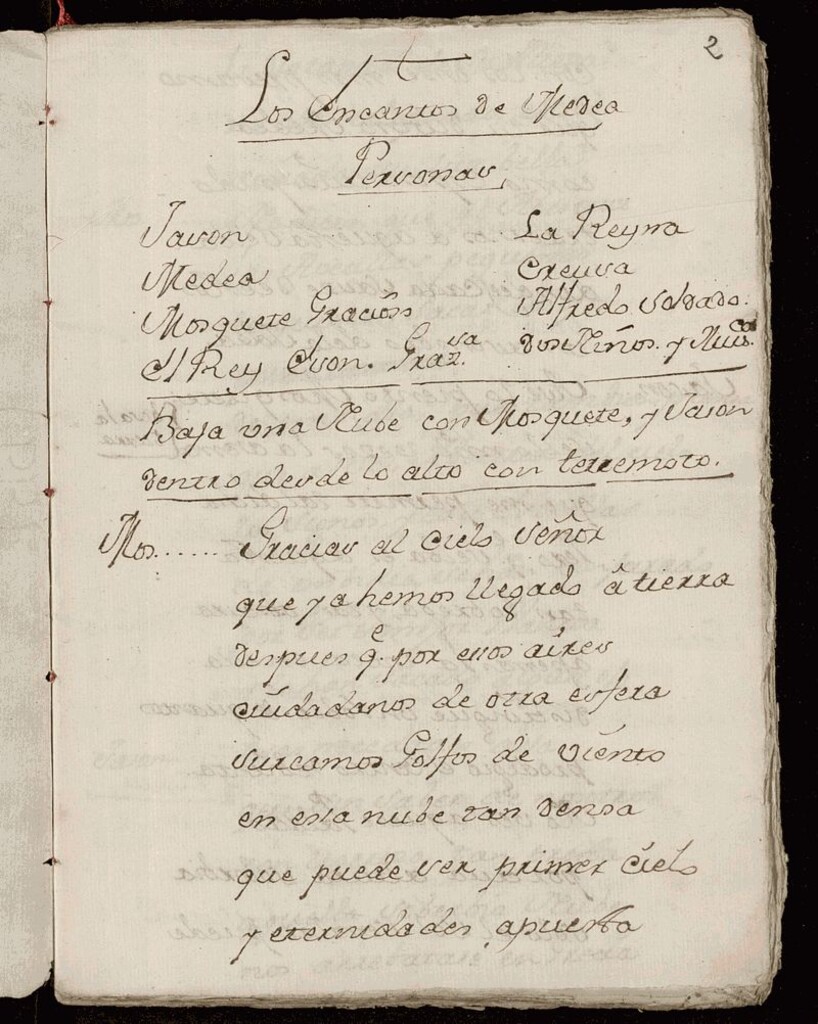 2
Los Encantos de Medea
Personas
Jason
La Reyna
Medea
Creusa
Mosquete Gracioso
Alfredo soldado.
El Rey Eson.
Dos Niños. y Mus.ca
Baja una Nube con Mosquete, y Jason
dentro desde lo alto con terremoto.
Mos...... Gracias al cielo señor
que ya hemos llegado â tierra
despues q.e por esos aires
ciudadanos de otra esfera
surcamos Golfos de viento
en esa nube tan densa
que puede ser primer cielo
y eternidades apuesta